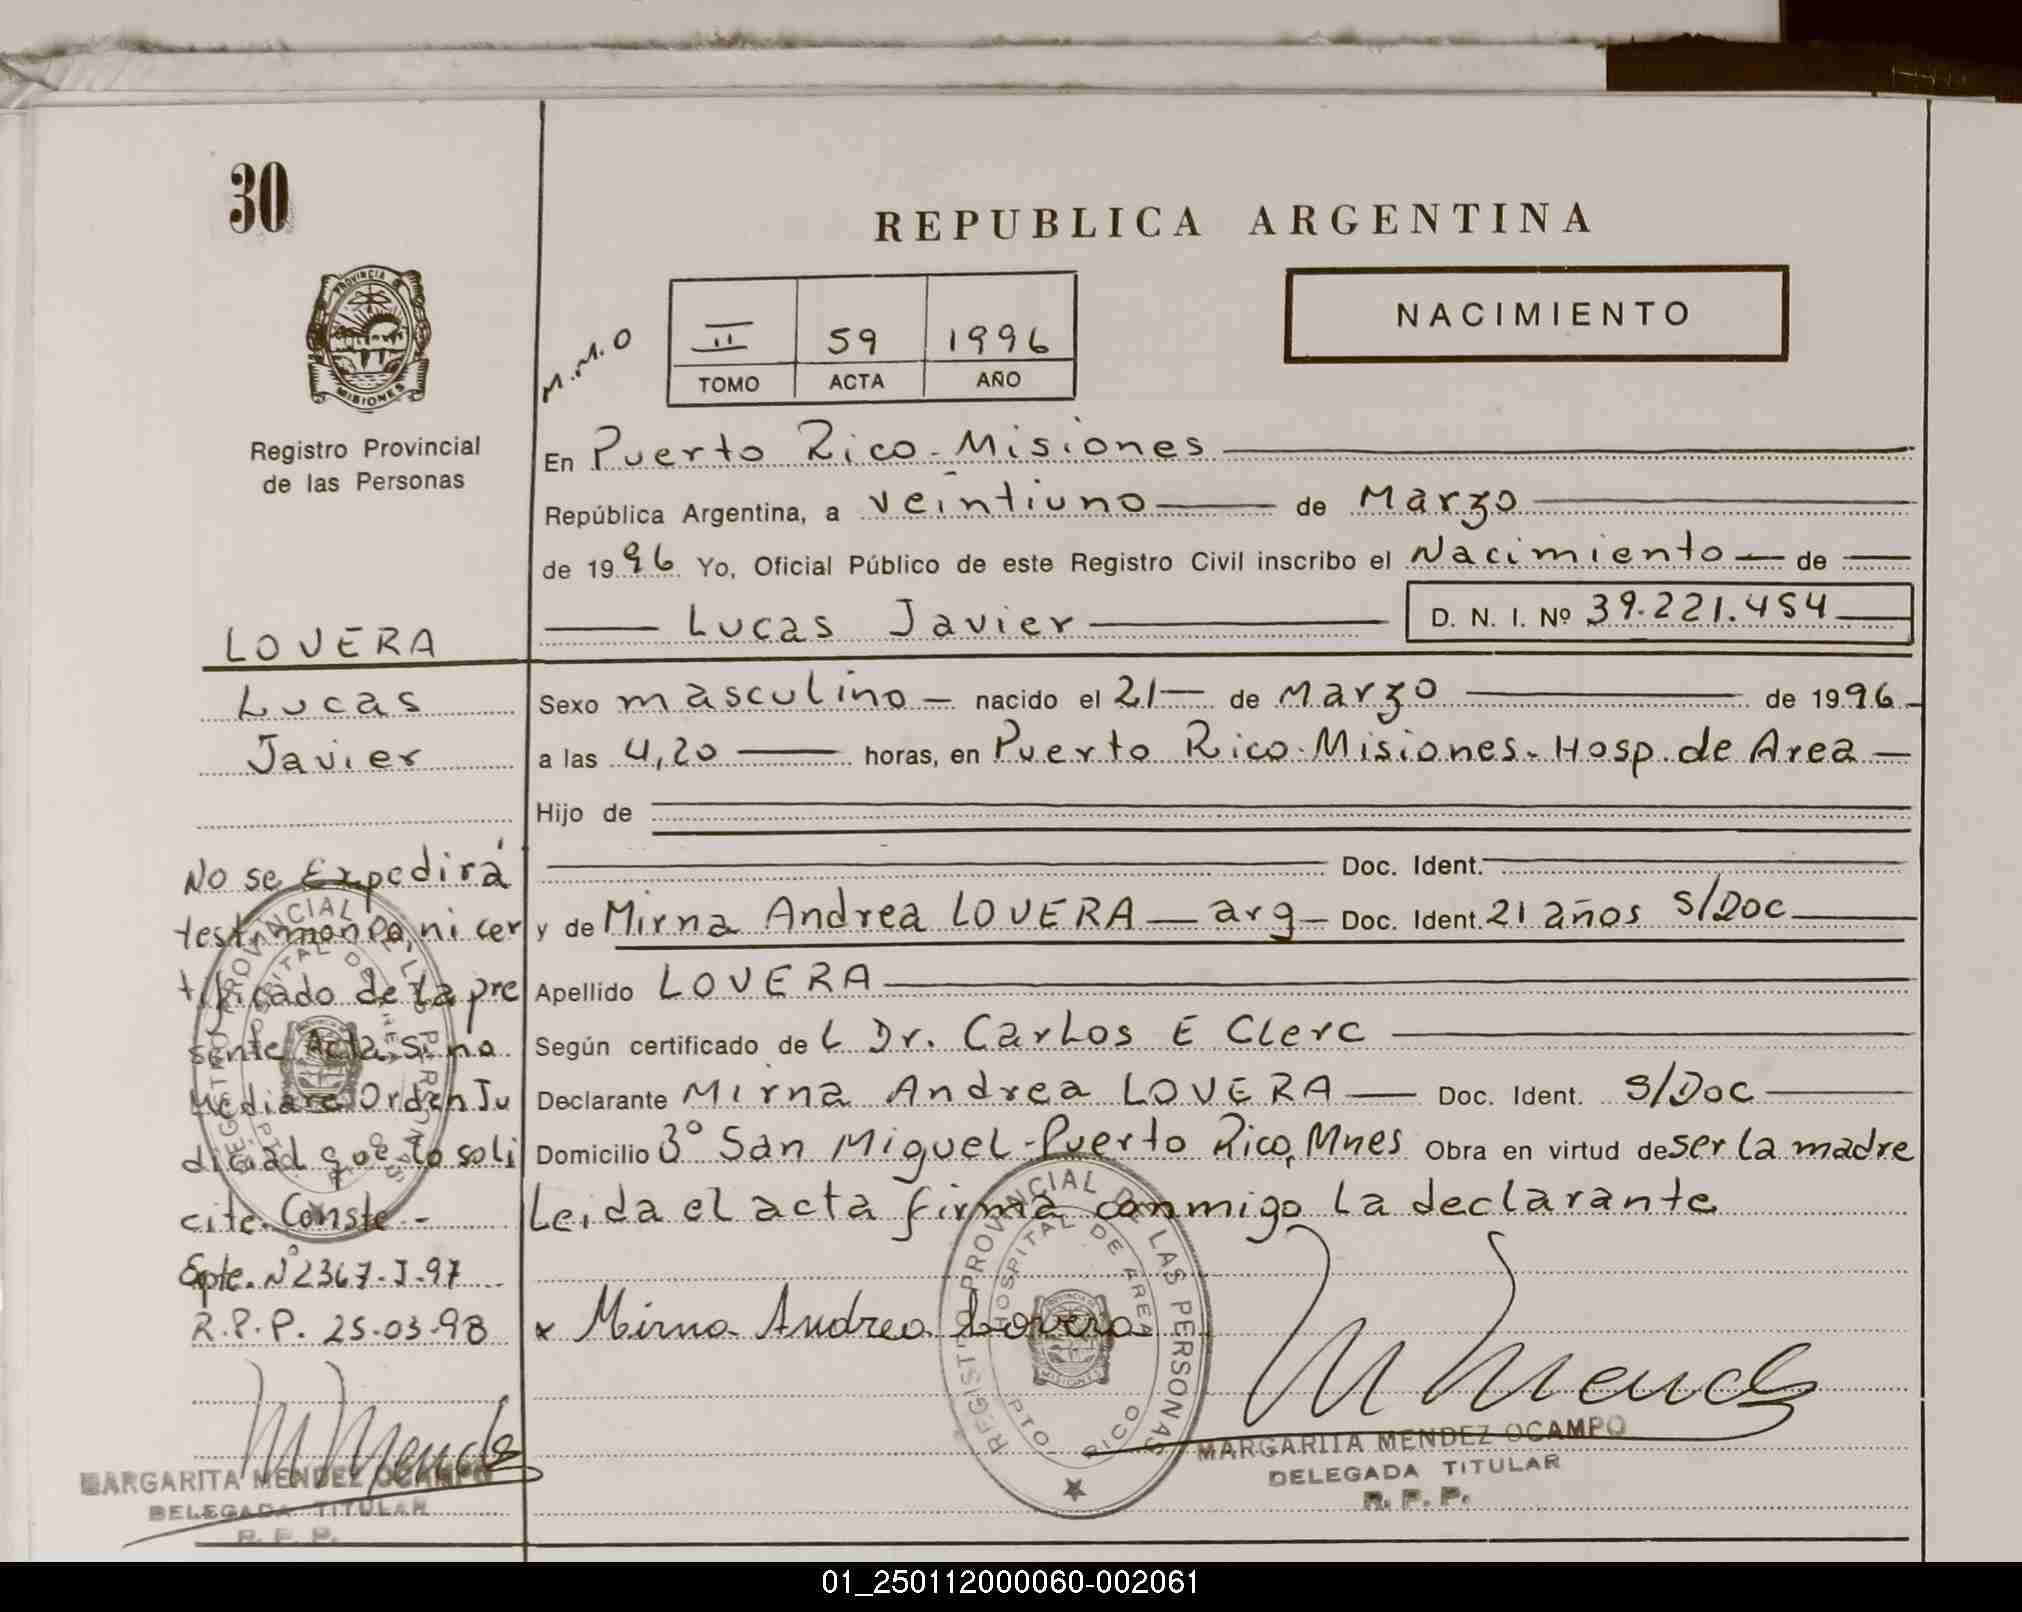 30
REPUBLICA ARGENTINA
PROVINCIA DE
MISIONES
M.M.O
II 59 1996
TOMO ACTA AÑO
NACIMIENTO
Registro Provincial
de las Personas
En Puerto Rico - Misiones
República Argentina, a veintiuno de Marzo
de 1996 Yo, Oficial Público de este Registro Civil inscribo el Nacimiento de
Lucas Javier D. N. I. Nº 39.221.454
LOVERA
Lucas
Javier
Sexo masculino nacido el 21 de Marzo de 1996
a las 4,20 horas, en Puerto Rico - Misiones - Hosp. de Area
Hijo de
Doc. Ident.
y de Mirna Andrea LOVERA arg Doc. Ident. 21 años S/Doc
Apellido LOVERA
Según certificado de L Dr. Carlos E Clerc
Declarante Mirna Andrea LOVERA Doc. Ident. S/Doc
Domicilio 3º San Miguel - Puerto Rico, Mnes Obra en virtud de ser la madre
Leida el acta firma conmigo la declarante
x Mirna Andrea Lovera
REGISTRO PROVINCIAL DE LAS PERSONAS
HOSPITAL DE AREA
PTO. RICO
M Mendez
MARGARITA MENDEZ OCAMPO
DELEGADA TITULAR
R. P. P.
No se Expedirá
testimonio, ni cer
tificado de la pre
sente Acta si no
Mediare Orden Ju
dicial que lo soli
cite. Conste.-
Expte. Nº 2367-J-97
R.P.P. 25-03-98
REGISTRO PROVINCIAL DE LAS PERSONAS
HOSPITAL DE AREA
M Mendez
MARGARITA MENDEZ OCAMPO
DELEGADA TITULAR
R. P. P.
01_250112000060-002061